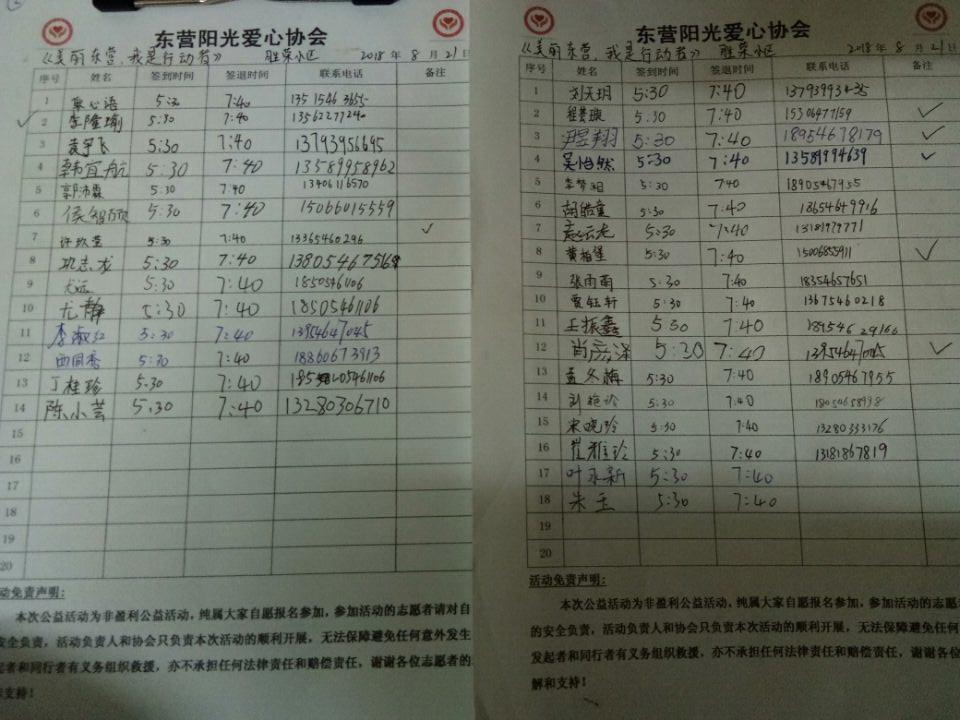 东营阳光爱心协会
《美丽东营,我是行动者》 胜荣小区 2018 年 8 月 21 日
序号 姓名 签到时间 签退时间 联系电话 备注
1 5:30 7:40
2 李隆瑜 5:30 7:40 13562277240 ✓
3 袁宇飞 5:30 7:40 13793956695
4 韩宜航 5:30 7:40 13589958962
5 郭沛霖 5:30 7:40 13406116570
6 侯智 5:30 7:40 15066015559
7 许玖莹 5:30 7:40 13365460296 ✓
8 巩志龙 5:30 7:40
9 尤远 5:30 7:40 18505461106
10 尤静 5:30 7:40 18505461106
11 李淑红 5:30 7:40 13954647045
12 5:30 7:40 18860673913
13 丁桂珍 5:30 7:40
14 陈小芸 5:30 7:40 13280306710
15
16
17
18
19
20
动免责声明:
本次公益活动为非盈利公益活动,纯属大家自愿报名参加,参加活动的志愿者请对自
安全负责,活动负责人和协会只负责本次活动的顺利开展,无法保障避免任何意外发生
起者和同行者有义务组织救援,亦不承担任何法律责任和赔偿责任,谢谢各位志愿者的
和支持!
东营阳光爱心协会
《美丽东营,我是行动者》 胜荣小区 2018 年 8 月 21 日
序号 姓名 签到时间 签退时间 联系电话 备注
1 刘天玥 5:30 7:40 13793993435
2 程 5:30 7:40 15306477159 ✓
3 尹翌翔 5:30 7:40 18954678179 ✓
4 吴怡然 5:30 7:40 13589994639 ✓
5 李梦 5:30 7:40 18905467955
6 胡皓童 5:30 7:40 18654649916
7 赵云龙 5:30 7:40 13181979771
8 黄柏堡 5:30 7:40 15006855911 ✓
9 张雨雨 5:30 7:40 18354657651
10 贾钰轩 5:30 7:40 13675460218
11 王振鑫 5:30 7:40 18954629166
12 尚庆泽 5:30 7:40 13954647045 ✓
13 孟冬梅 5:30 7:40 18905467955
14 刘艳玲 5:30 7:40 18054658998
15 宋晓玲 5:30 7:40 13280333176
16 崔雅珍 5:30 7:40 13181867819
17 叶永新 5:30 7:40
18 朱玉 5:30 7:40
19
20
活动免责声明:
本次公益活动为非盈利公益活动,纯属大家自愿报名参加,参加活动的志愿
的安全负责,活动负责人和协会只负责本次活动的顺利开展,无法保障避免任何
发起者和同行者有义务组织救援,亦不承担任何法律责任和赔偿责任,谢谢各位
解和支持!